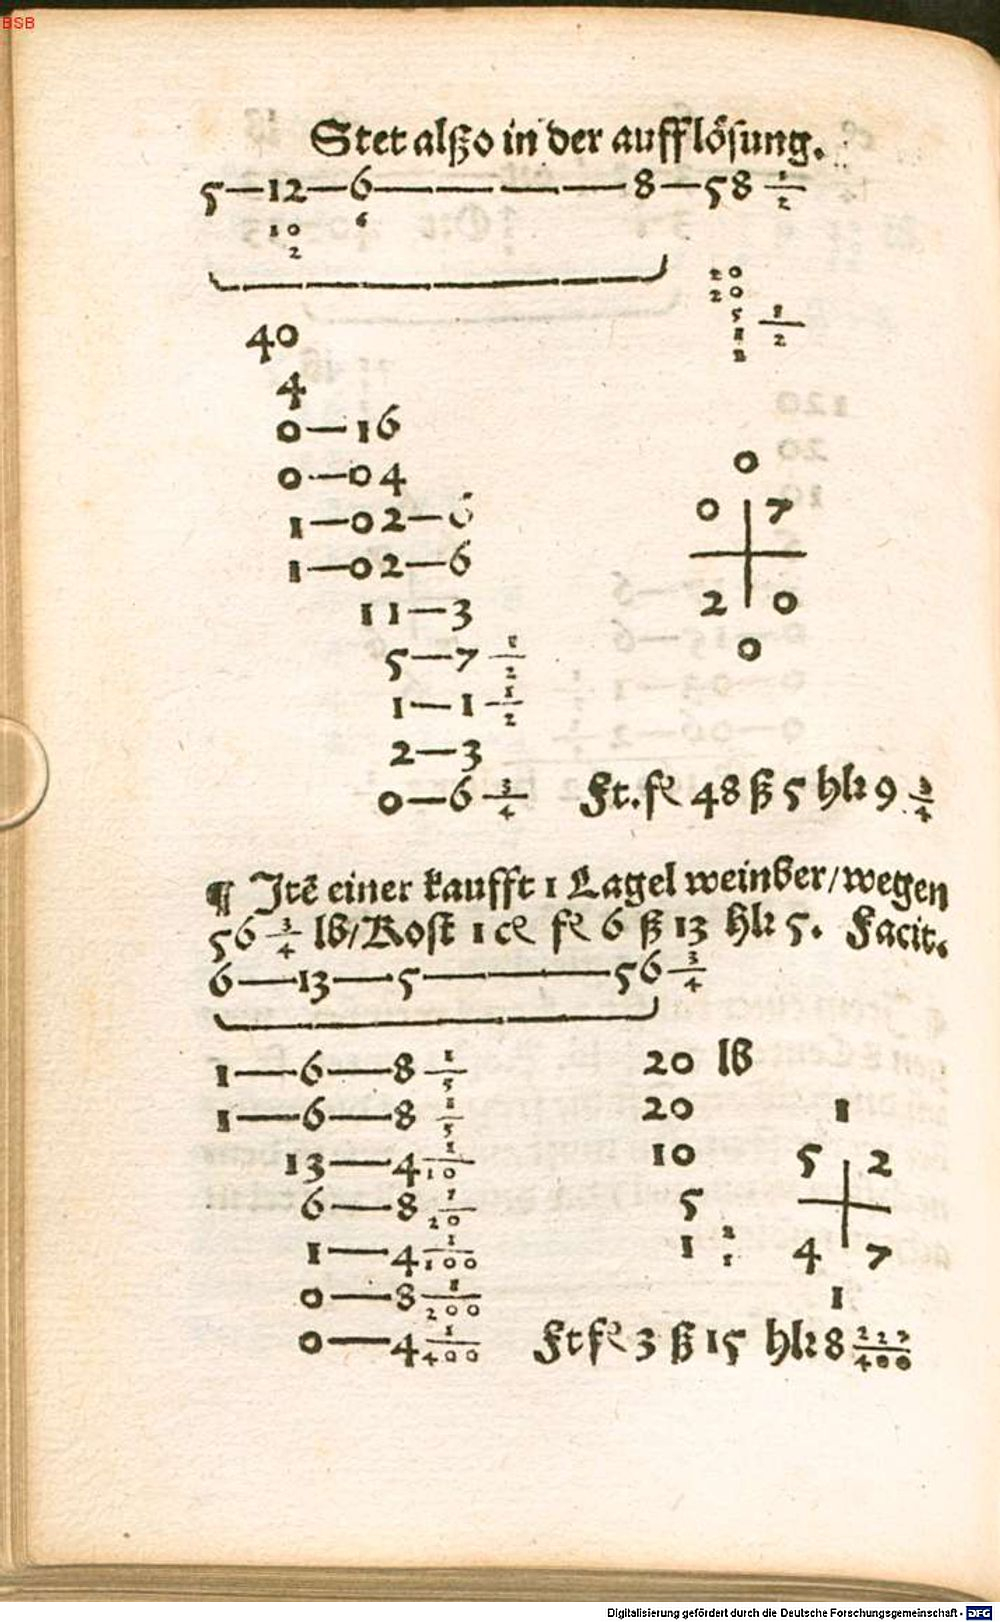 BSB
Stet alßo in der aufflösung.
5—12—6— — — —8—58 1/2
10 6
2
20
20
5 1/2
1
2
40
4
0—16
0—04
1—02—6
1—02—6
11—3
5—7 1/2
1—1 1/2
2—3
0—6 3/4
0
0 7
2 0
0
Ft. fl 48 ß 5 hlr 9 3/4
¶ Jtē einer kaufft 1 Lagel weinber/wegen
56 3/4 lb/Kost 1 cē fl 6 ß 13 hlr 5. Facit.
6—13—5— — — —56 3/4
1—6—8 1/5
1—6—8 1/5
13—4 1/10
6—8 1/20
1—4 1/100
0—8 1/200
0—4 1/400
20 lb
20
10
5
1
1
5 2
4 7
1
Ft fl 3 ß 15 hlr 8 227/400
Digitalisierung gefördert durch die Deutsche Forschungsgemeinschaft - DFG